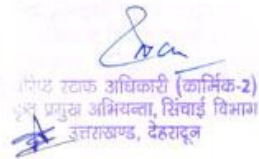 स्टाफ अधिकारी (कार्मिक-2)
प्रमुख अभियन्ता, सिंचाई विभाग
उत्तराखण्ड, देहरादून